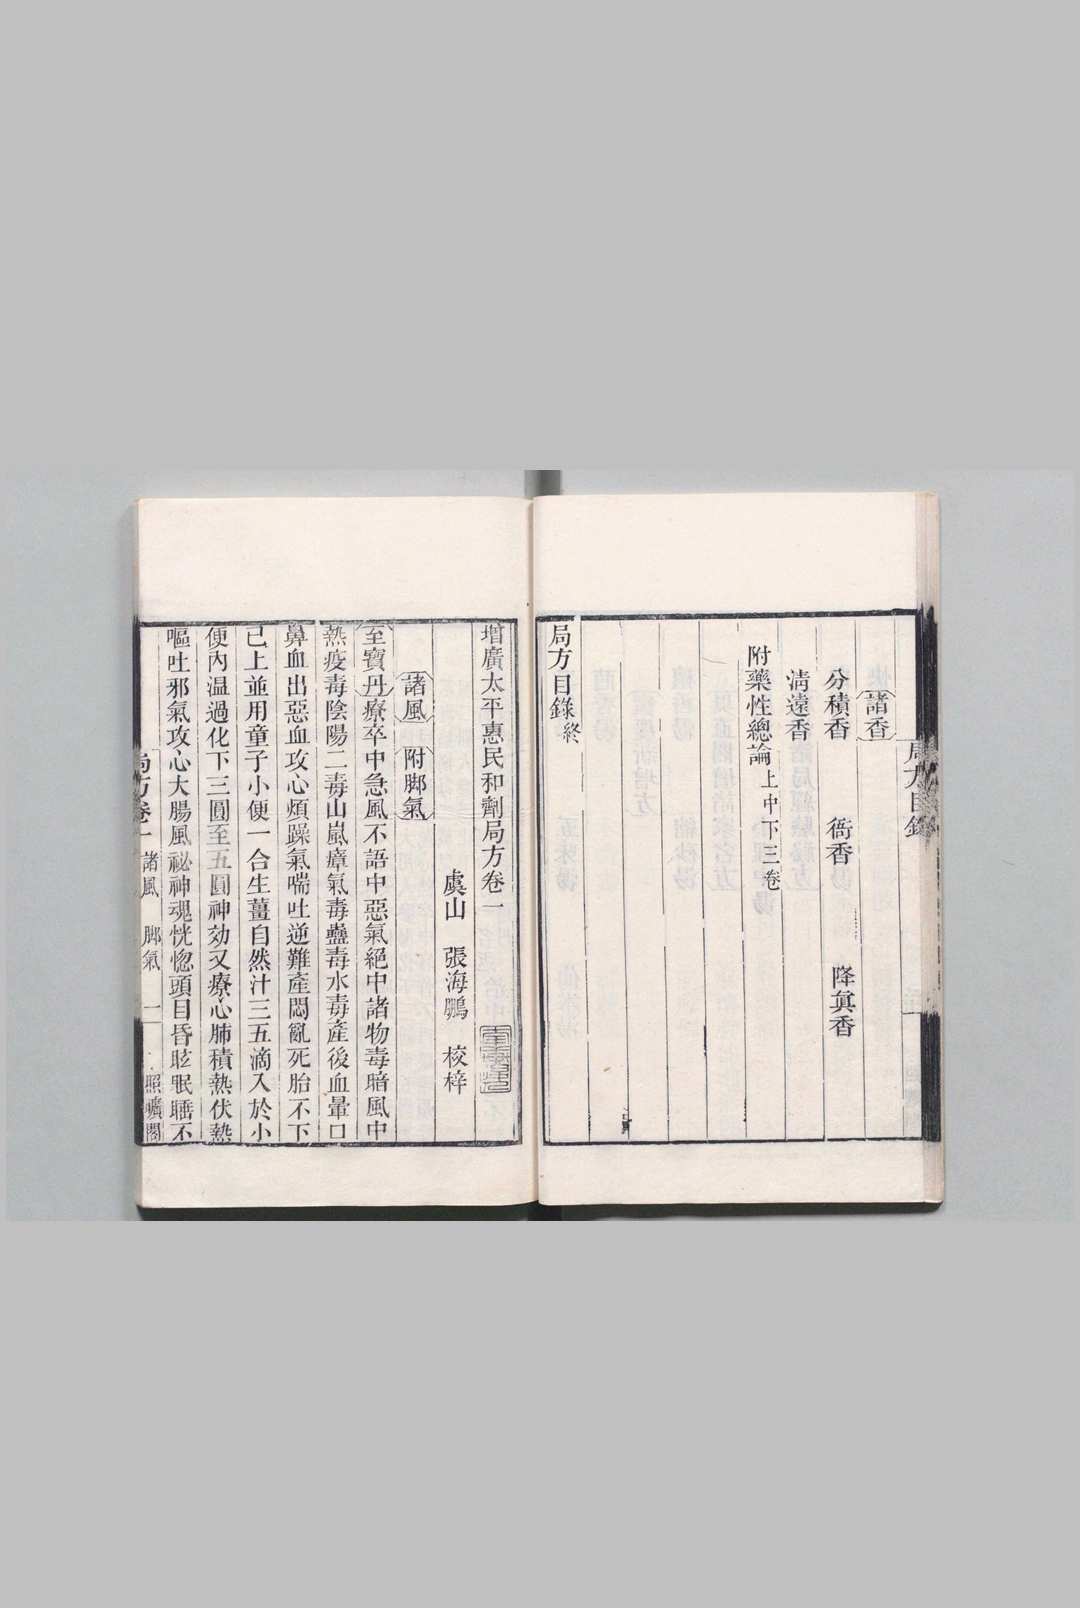 局方目錄
諸香
分積香 衙香 降眞香
清遠香
附藥性總論上中下三卷
局方目錄終
增廣太平惠民和劑局方卷一
虞山 張海鵬 校梓
諸風 附脚氣
至寶丹療卒中急風不語中惡氣絕中諸物毒暗風中
熱疫毒陰陽二毒山嵐瘴氣毒蠱毒水毒產後血暈口
鼻血出惡血攻心煩躁氣喘吐逆難產悶亂死胎不下
已上並用童子小便一合生薑自然汁三五滴入於小
便內温過化下三圓至五圓神効又療心肺積熱伏熱
嘔吐邪氣攻心大腸風祕神魂恍惚頭目昏眩眠睡不
局方卷一 諸風 脚氣 一 照曠閣